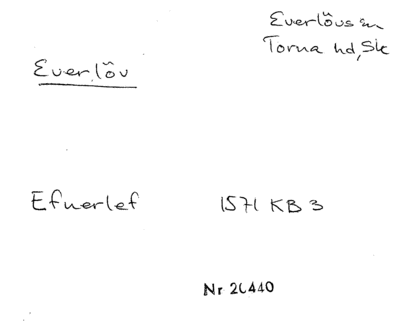 Everlövs sn
Torna hd, Sk
Everlöv
Efuerlef 1571 KB 3
Nr 20440